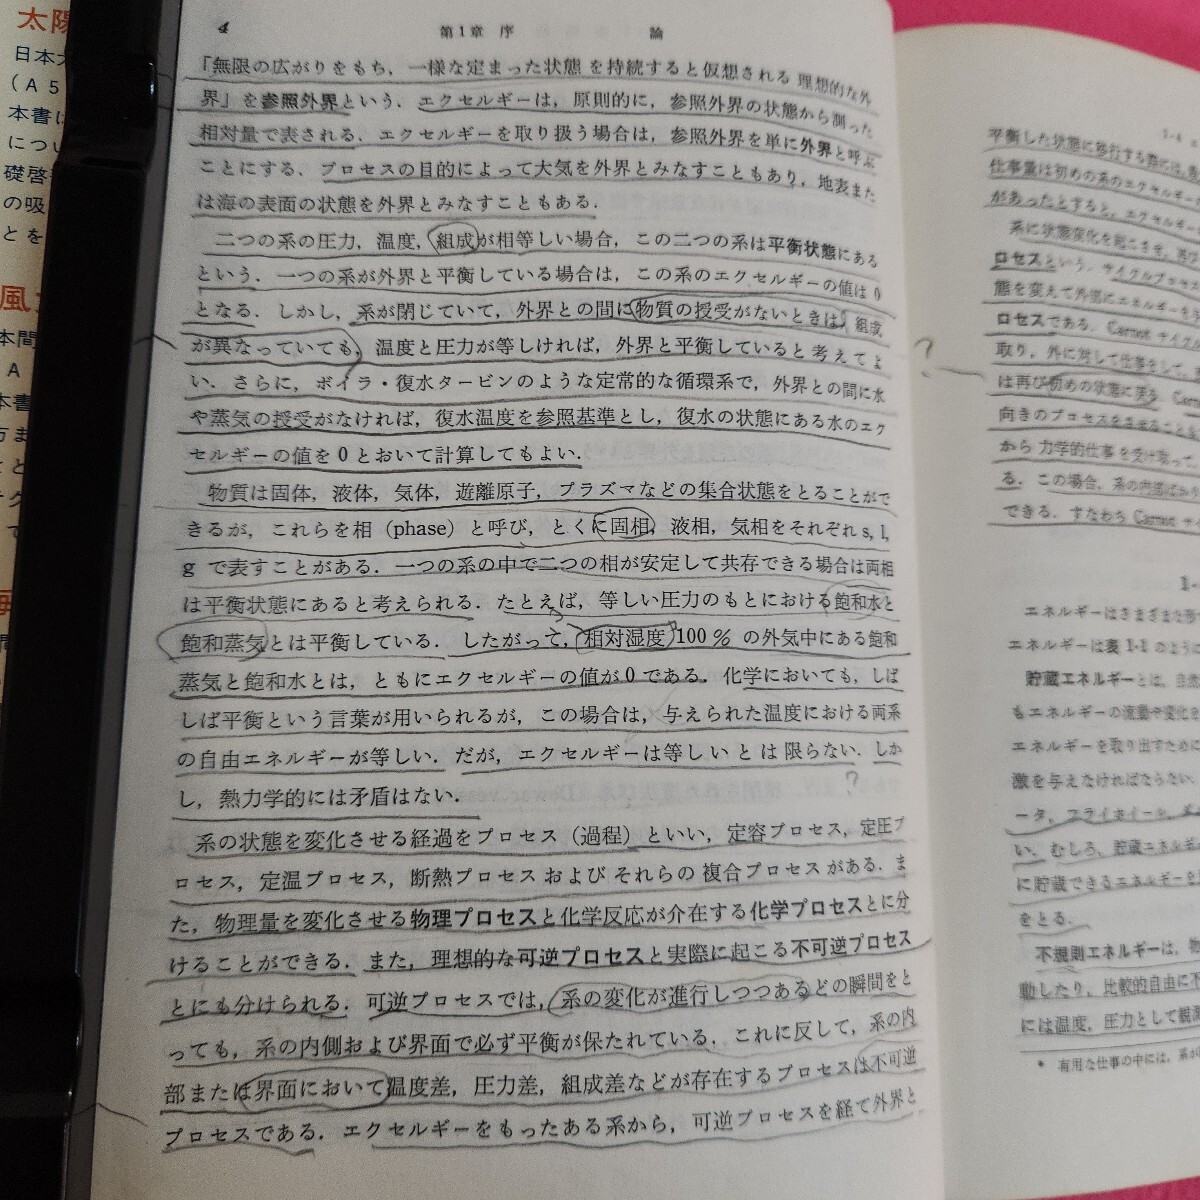 太陽
日本太
(A5
本書は
につい
礎啓
の吸
とを
風
本間
A
4
第1章 序 論
「無限の広がりをもち，一様な定まった状態を持続すると仮想される理想的な外
界」を参照外界という．エクセルギーは，原則的に，参照外界の状態から測った
相対量で表される．エクセルギーを取り扱う場合は，参照外界を単に外界と呼ぶ
ことにする．プロセスの目的によって大気を外界とみなすこともあり，地表また
は海の表面の状態を外界とみなすこともある．
二つの系の圧力，温度，組成が相等しい場合，この二つの系は平衡状態にある
という．一つの系が外界と平衡している場合は，この系のエクセルギーの値は0
となる．しかし，系が閉じていて，外界との間に物質の授受がないときは，組成
が異なっていても，温度と圧力が等しければ，外界と平衡していると考えてよ
い．さらに，ボイラ・復水タービンのような定常的な循環系で，外界との間に水
や蒸気の授受がなければ，復水温度を参照基準とし，復水の状態にある水のエク
セルギーの値を0とおいて計算してもよい．
物質は固体，液体，気体，遊離原子，プラズマなどの集合状態をとることがで
きるが，これらを相（phase）と呼び，とくに固相，液相，気相をそれぞれs, l,
gで表すことがある．一つの系の中で二つの相が安定して共存できる場合は両相
は平衡状態にあると考えられる．たとえば，等しい圧力のもとにおける飽和水と
飽和蒸気とは平衡している．したがって，相対湿度100％の外気中にある飽和
蒸気と飽和水とは，ともにエクセルギーの値が0である．化学においても，しば
しば平衡という言葉が用いられるが，この場合は，与えられた温度における両系
の自由エネルギーが等しい．だが，エクセルギーは等しいとは限らない．しか
し，熱力学的には矛盾はない．
?
系の状態を変化させる経過をプロセス（過程）といい，定容プロセス，定圧プ
ロセス，定温プロセス，断熱プロセスおよびそれらの複合プロセスがある．ま
た，物理量を変化させる物理プロセスと化学反応が介在する化学プロセスとに分
けることができる．また，理想的な可逆プロセスと実際に起こる不可逆プロセス
とにも分けられる．可逆プロセスでは，系の変化が進行しつつあるどの瞬間をと
っても，系の内側および界面で必ず平衡が保たれている．これに反して，系の内
部または界面において温度差，圧力差，組成差などが存在するプロセスは不可逆
プロセスである．エクセルギーをもったある系から，可逆プロセスを経て外界と
?
平衡した状態に移行する際には，
仕事量は初めの系のエクセルギー
があったとすると，エクセルギー
系に状態変化を起こさせ，再び
ロセスという．サイクルプロセス
態を変えて外部にエネルギーを
ロセスである．Carnotサイクル
取り，外に対して仕事をして，
は再び初めの状態に戻る．
向きのプロセスをさせること
から力学的仕事を受け取って，
る．この場合，系の内部
できる．すなわちCarnotサイ
エネルギーはさまざまな形
エネルギーは表1・1のように
貯蔵エネルギーとは，自然
もエネルギーの流動や変化を
エネルギーを取り出すために
激を与えなければならない．
ータ，フライホイール，
い．むしろ，貯蔵エネルギ
に貯蔵できるエネルギーを
をとる．
不規則エネルギーは，物
動したり，比較的自由に
には温度，圧力として観測
* 有用な仕事の中には，系が